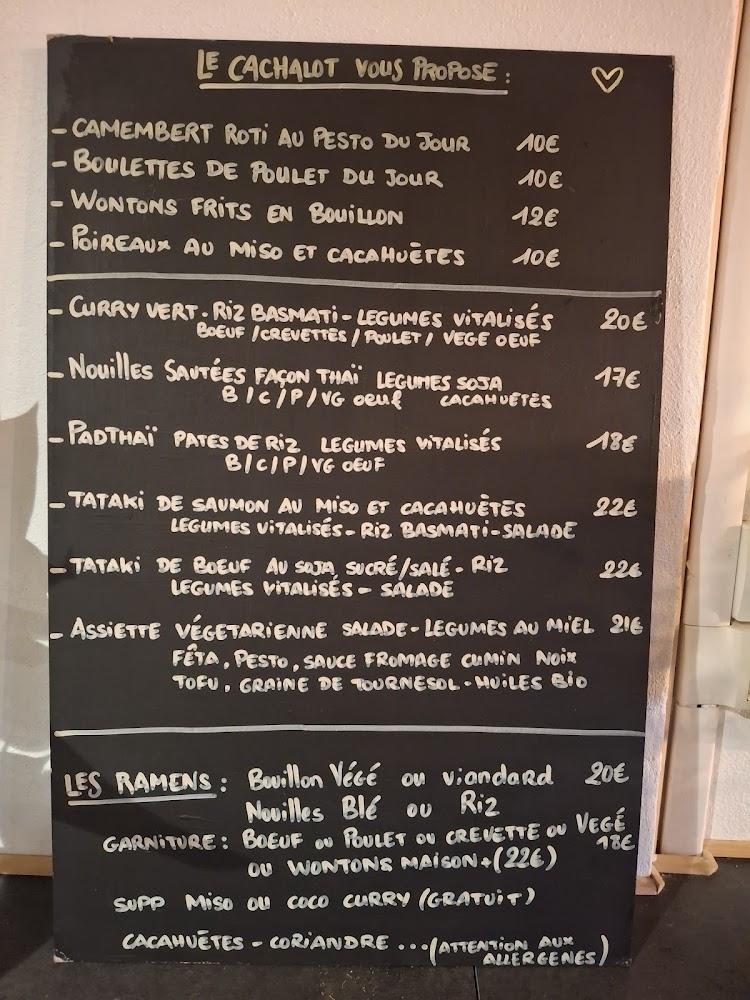 LE CACHALOT VOUS PROPOSE :
- CAMEMBERT ROTI AU PESTO DU JOUR 10€
- BOULETTES DE POULET DU JOUR 10€
- WONTONS FRITS EN BOUILLON 12€
- POIREAUX AU MISO ET CACAHUÈTES 10€
- CURRY VERT - RIZ BASMATI - LEGUMES VITALISÉS 20€
BOEUF / CREVETTES / POULET / VEGE OEUF
- Nouilles SAUTÉES FAÇON THAÏ LEGUMES SOJA 17€
B / C / P / VG oeuf CACAHUETES
- PADTHAÏ PATES DE RIZ LEGUMES VITALISÉS 18€
B / C / P / VG OEUF
- TATAKI DE SAUMON AU MISO ET CACAHUÈTES 22€
LEGUMES VITALISÉS - RIZ BASMATI - SALADE
- TATAKI DE BOEUF AU SOJA SUCRÉ/SALÉ - RIZ 22€
LEGUMES VITALISÉS - SALADE
- ASSIETTE VÉGETARIENNE SALADE - LEGUMES AU MIEL 21€
FÊTA, PESTO, SAUCE FROMAGE CUMIN NOIX
TOFU, GRAINE DE TOURNESOL - HUILES BIO
LES RAMENS : Bouillon Végé ou viandard 20€
Nouilles Blé ou Riz
GARNITURE : BOEUF ou POULET OU CREVETTE OU VEGÉ 18€
OU WONTONS MAISON + (22€)
SUPP MISO OU COCO CURRY (GRATUIT)
CACAHUÈTES - CORIANDRE ... (ATTENTION AUX
ALLERGENES)